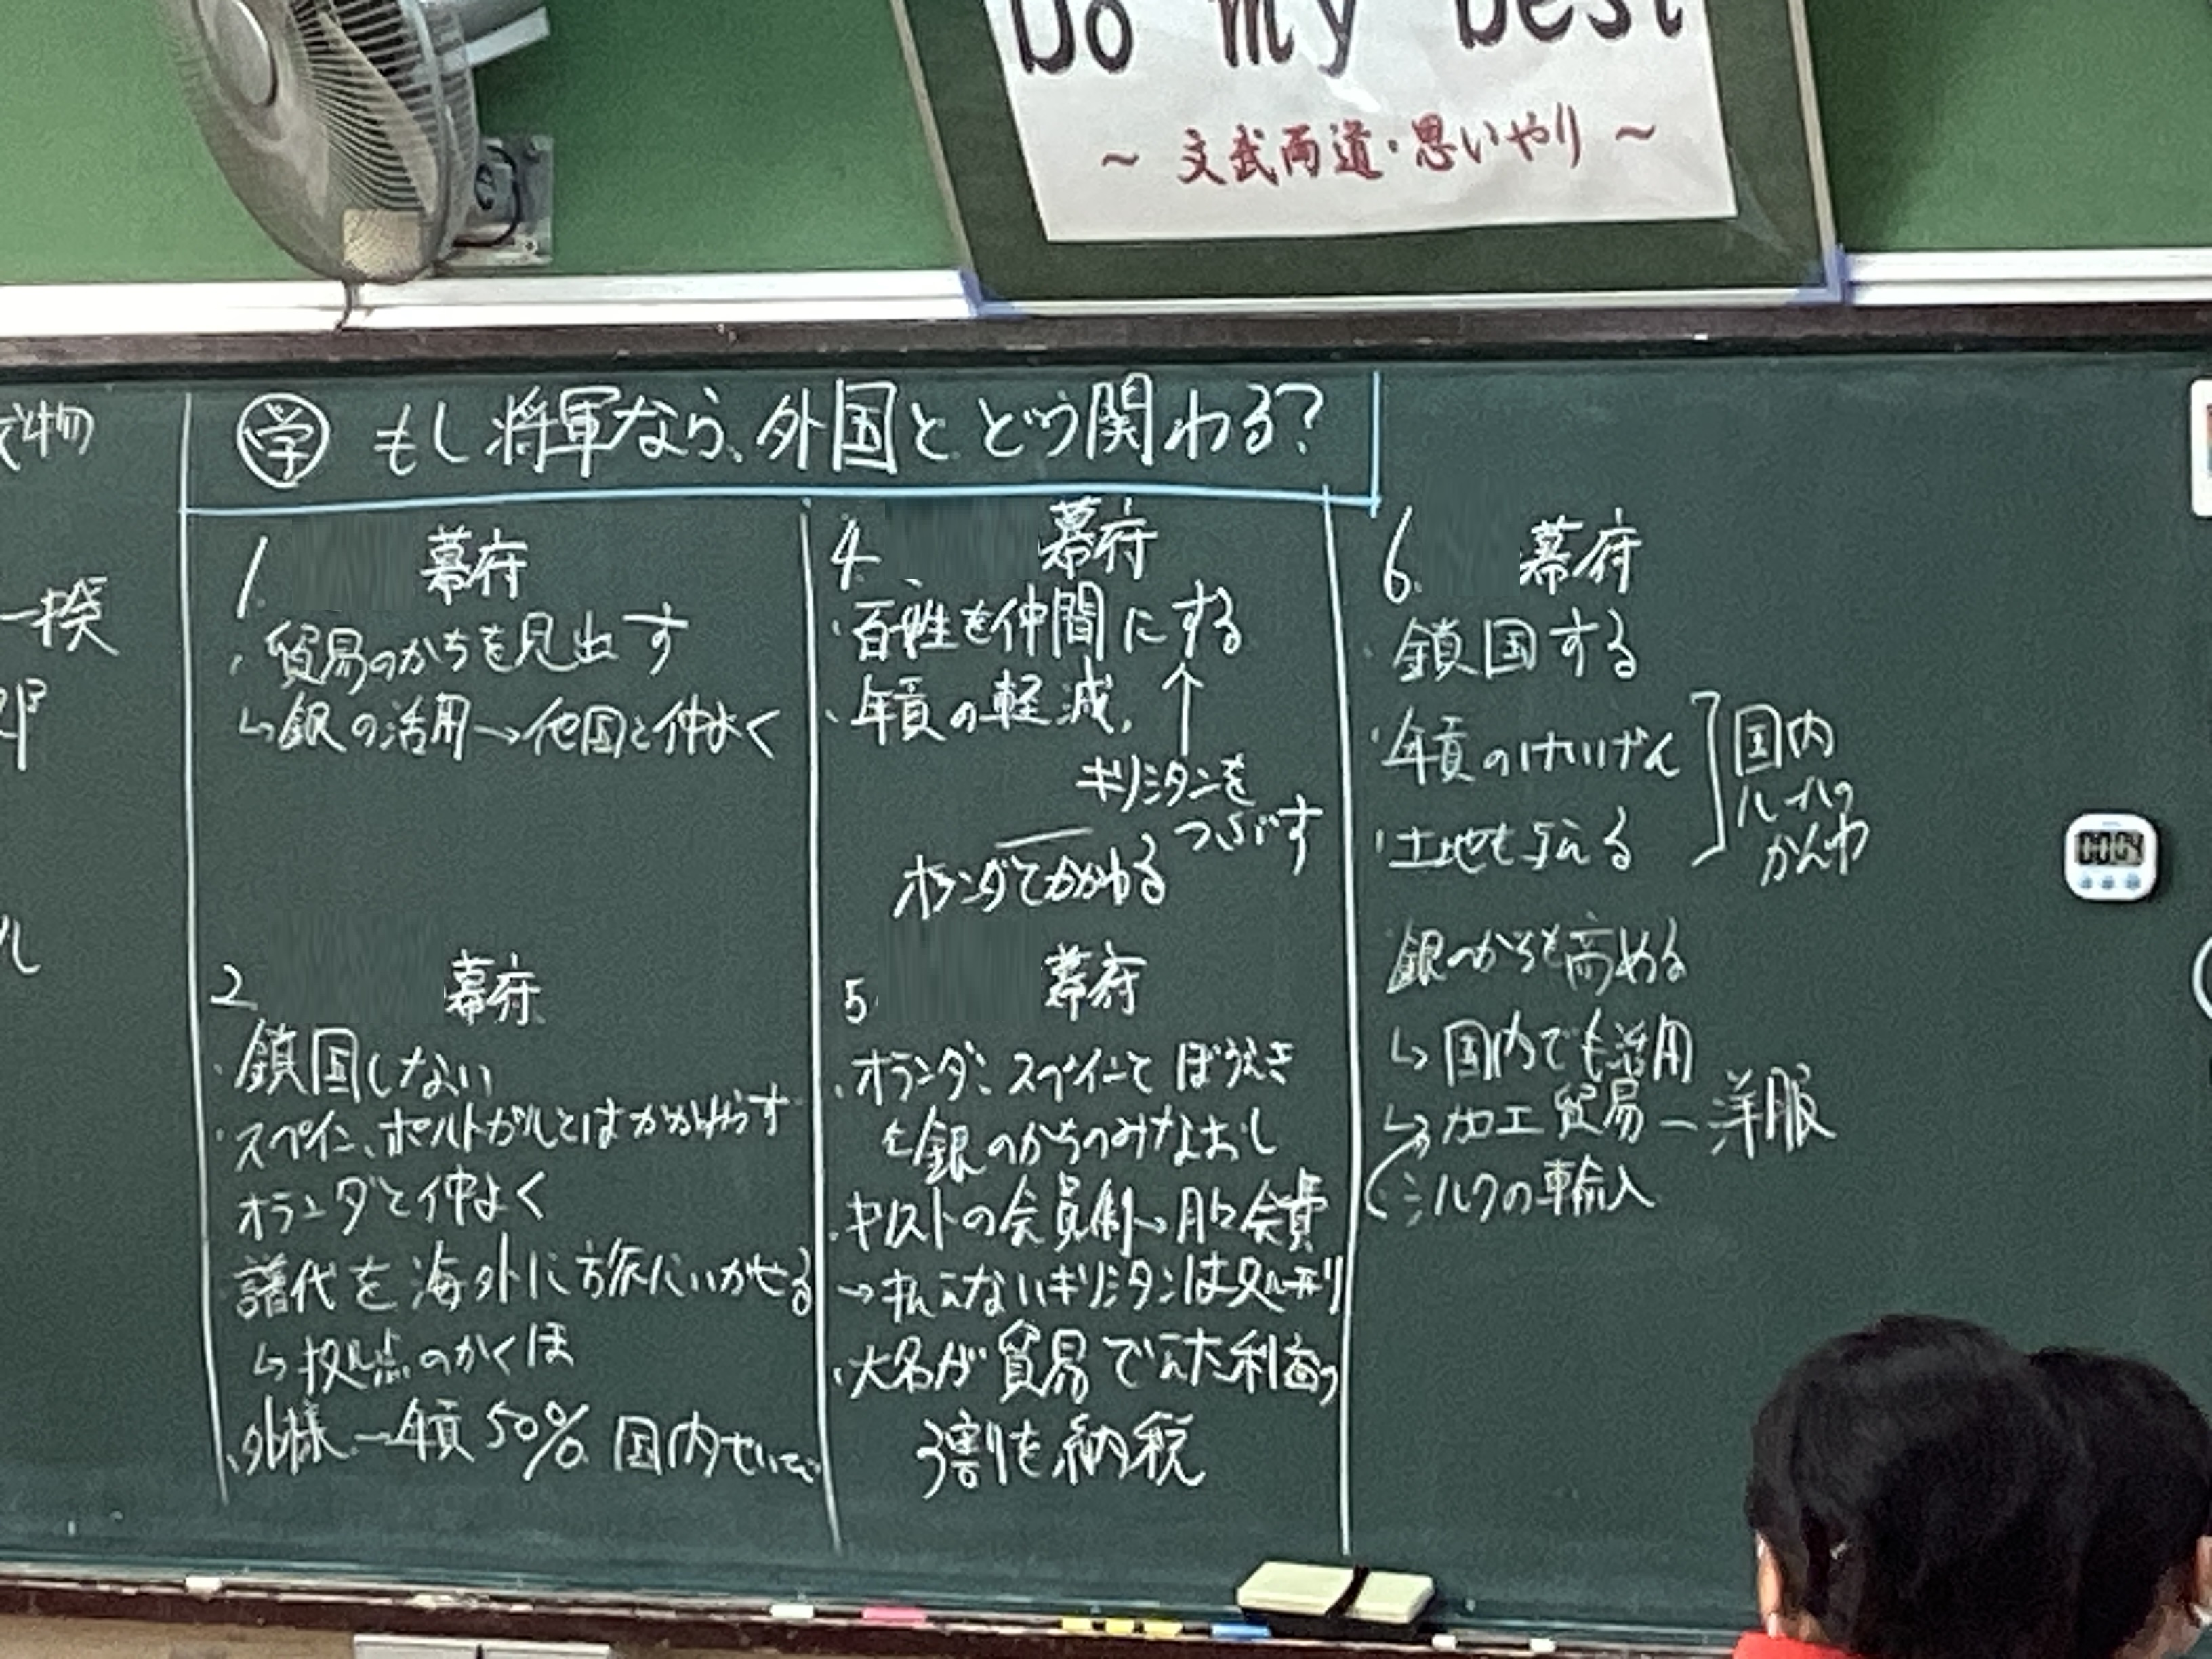 Do my best
～ 文武両道・思いやり ～
物
一揆
学 もし将軍なら、外国と どう関わる？
1. 幕府
・貿易のかちを見出す
↳銀の活用→他国と仲よく
2. 幕府
・鎖国しない
・スペイン、ポルトガルとはかかわらす
オランダと仲よく
譜代を海外に旅にいかせる
↳拠点のかくほ
・外様→年貢50% 国内せいび
4. 幕府
・百姓を仲間にする
・年貢の軽減
↑
キリシタンを
つぶす
オランダとかかわる
5. 幕府
・オランダ、スペインと ぼうえき
を銀のかちのみなおし
・キリストの会員制→月々会費
→払えないキリシタンは処刑
・大名が貿易でえた利益の
3割を納税
6. 幕府
・鎖国する
・年貢のけいげん
・土地も与える
国内
ルールの
かんわ
銀のかちを高める
↳国内でも活用
↳加工貿易－洋服
シルクの輸入